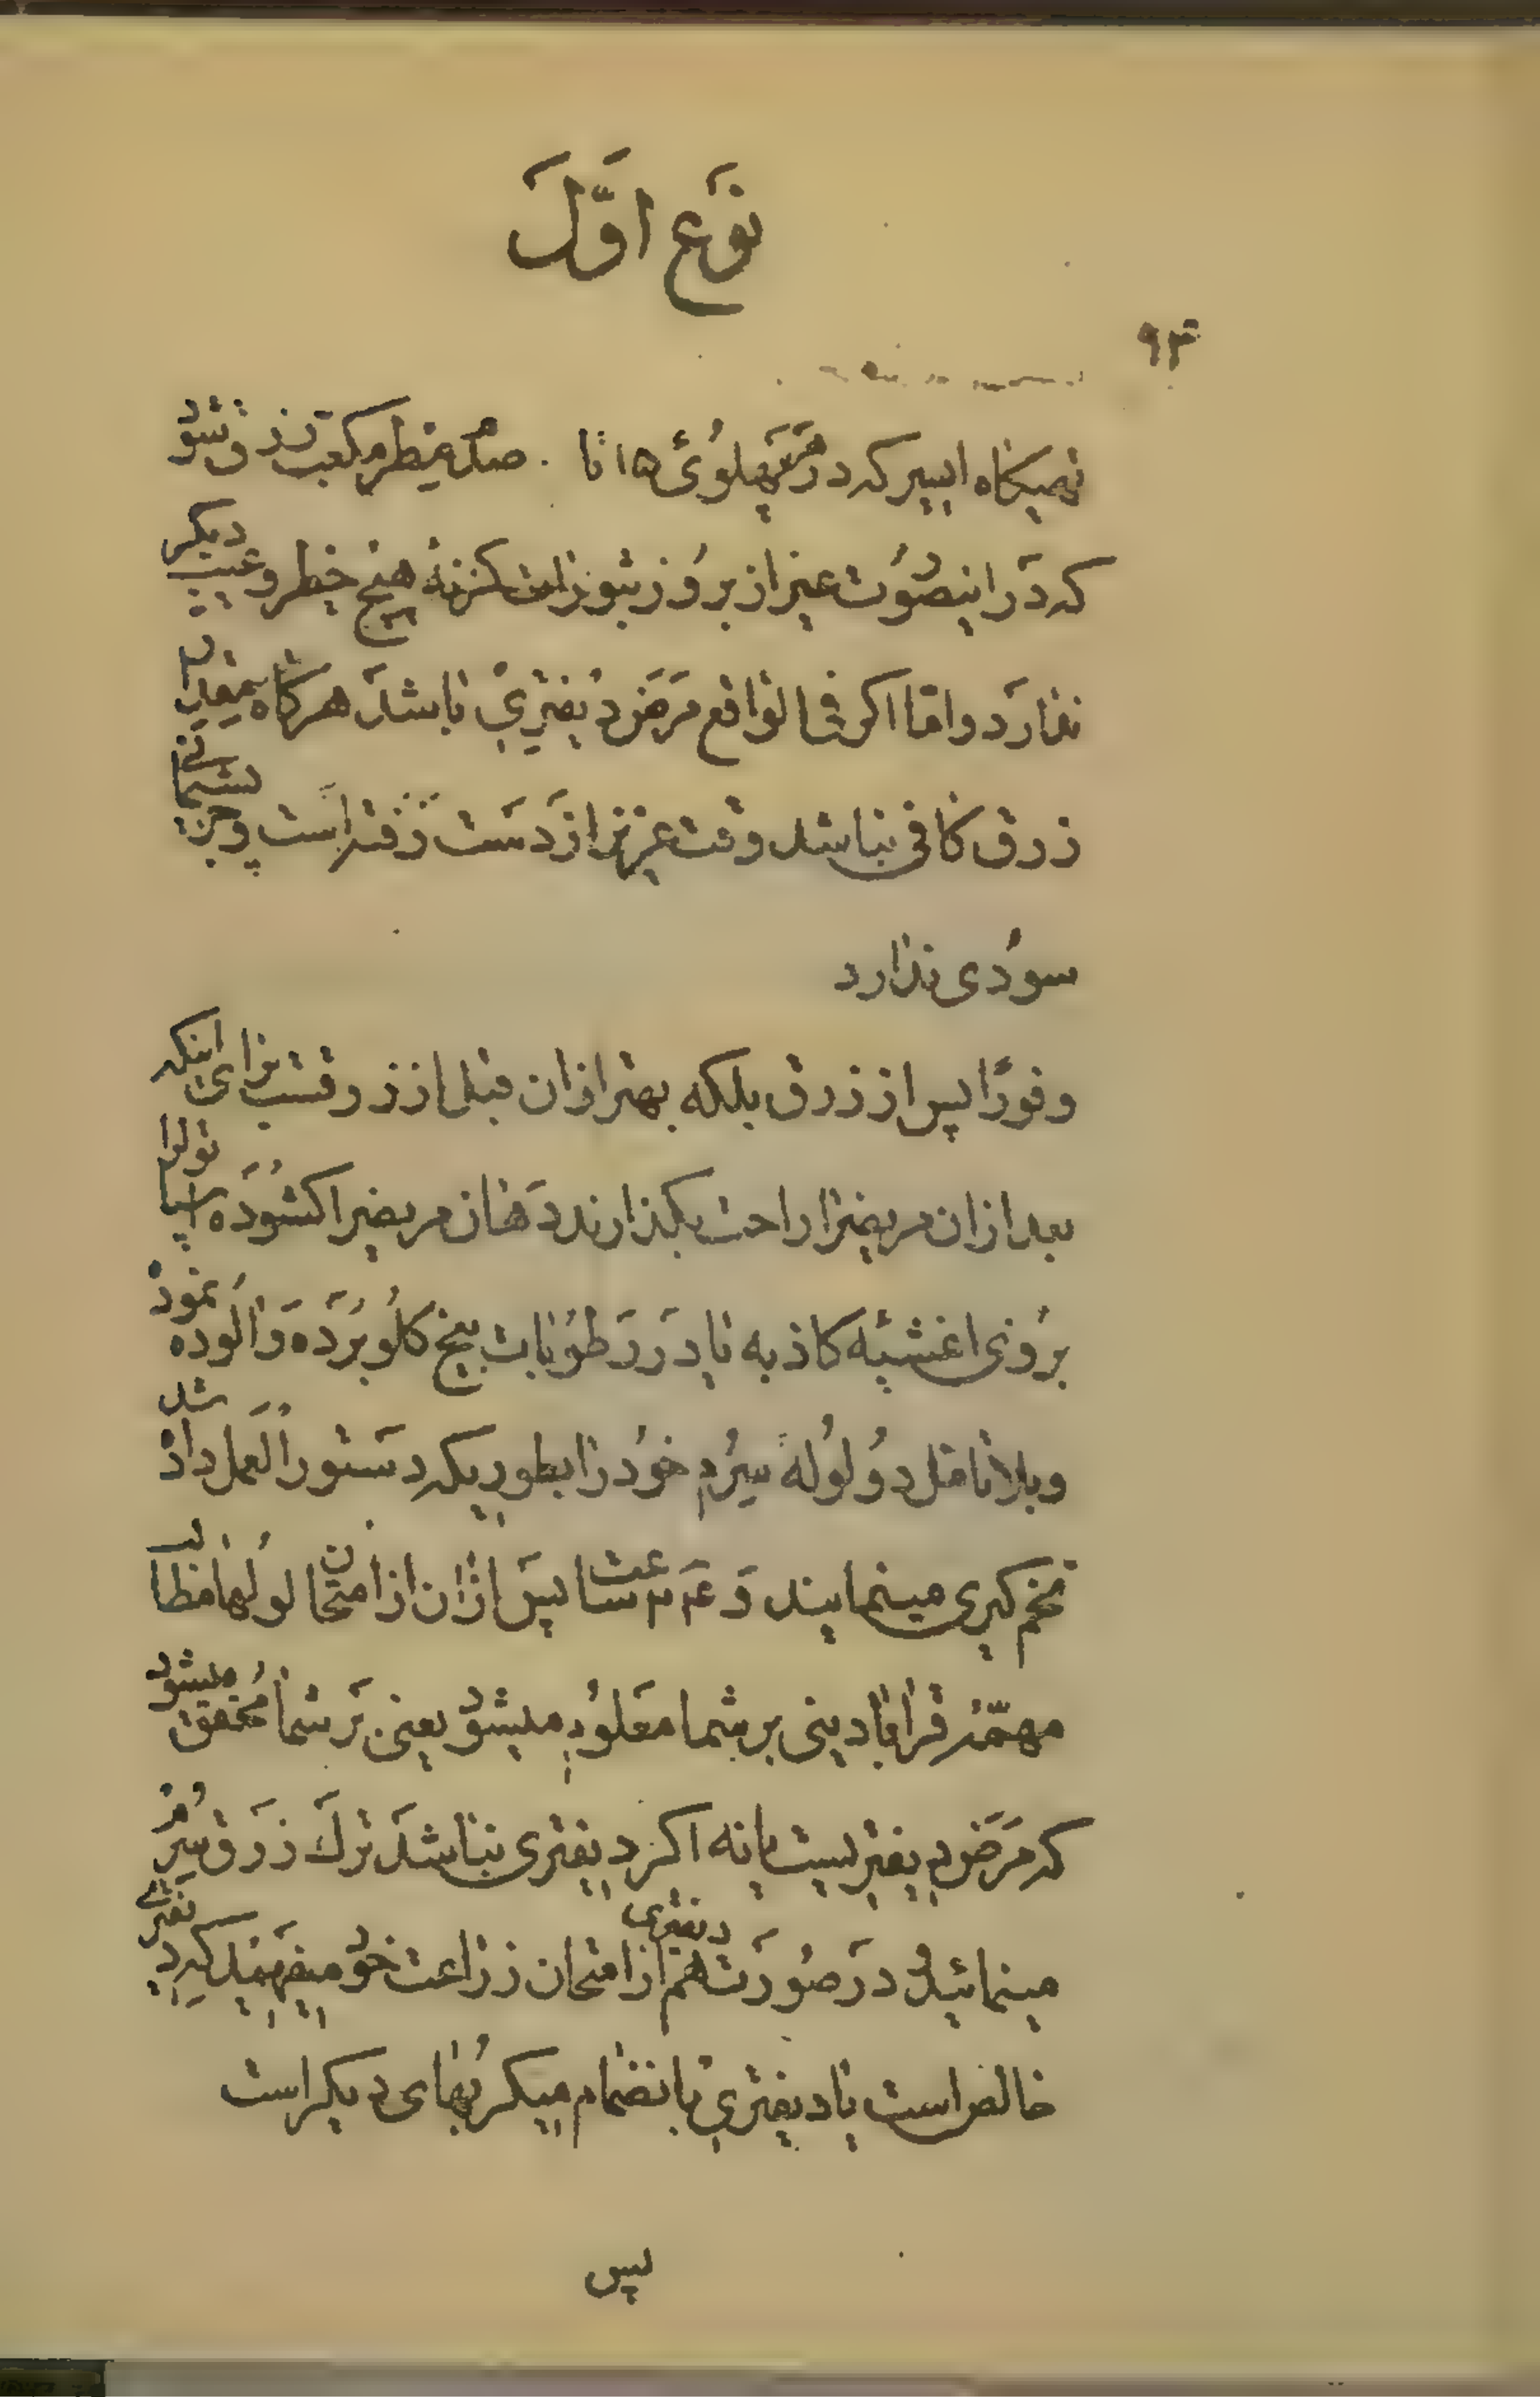 نوع اول
۹۴
تهیکاه ایسر که در هر پهلوئی ها تا صد سانتیمطر مکعب تزریق شود
که در اینصورت غیر از بروز بثورات کزنه هیچ خطر و عیب دیگر
ندارد و اما اگر فی الواقع مرض دیفتری باشد هرگاه بمقدار
زرق کافی نباشد وقت عزیز از دست رفته است و جز پشیمانی
سودی ندارد
و فورًا پس از زرق بلکه بهتر از آن قبل از زرقست برای اینکه
بعد از ان مریض را راحت بگذارند دهان مریض را کشوده اسپاتولرا
بروی اغشیه کاذبه یا در رطوبات بیخ کلو برده و آلوده نمود
و بلا تامل دو لوله سیرم خود را بطوریکه دستور العمل داده شد
تخم کیری مینمایند و ۲۴ ساعت پس از آن از امتحان لولها مطالب
مهمّهٔ قرابادینی بر شما معلوم میشود یعنی بر شما محقق میشود
که مرض دیفتریست یا نه اگر دیفتری نباشد ترک زرق سیرم
مینمائید و در صورت دیفتری هم از امتحان زراعت خود میفهمید که دیفتری
خالص است یا دیفتری بانضمام میکربهای دیگر است
پس